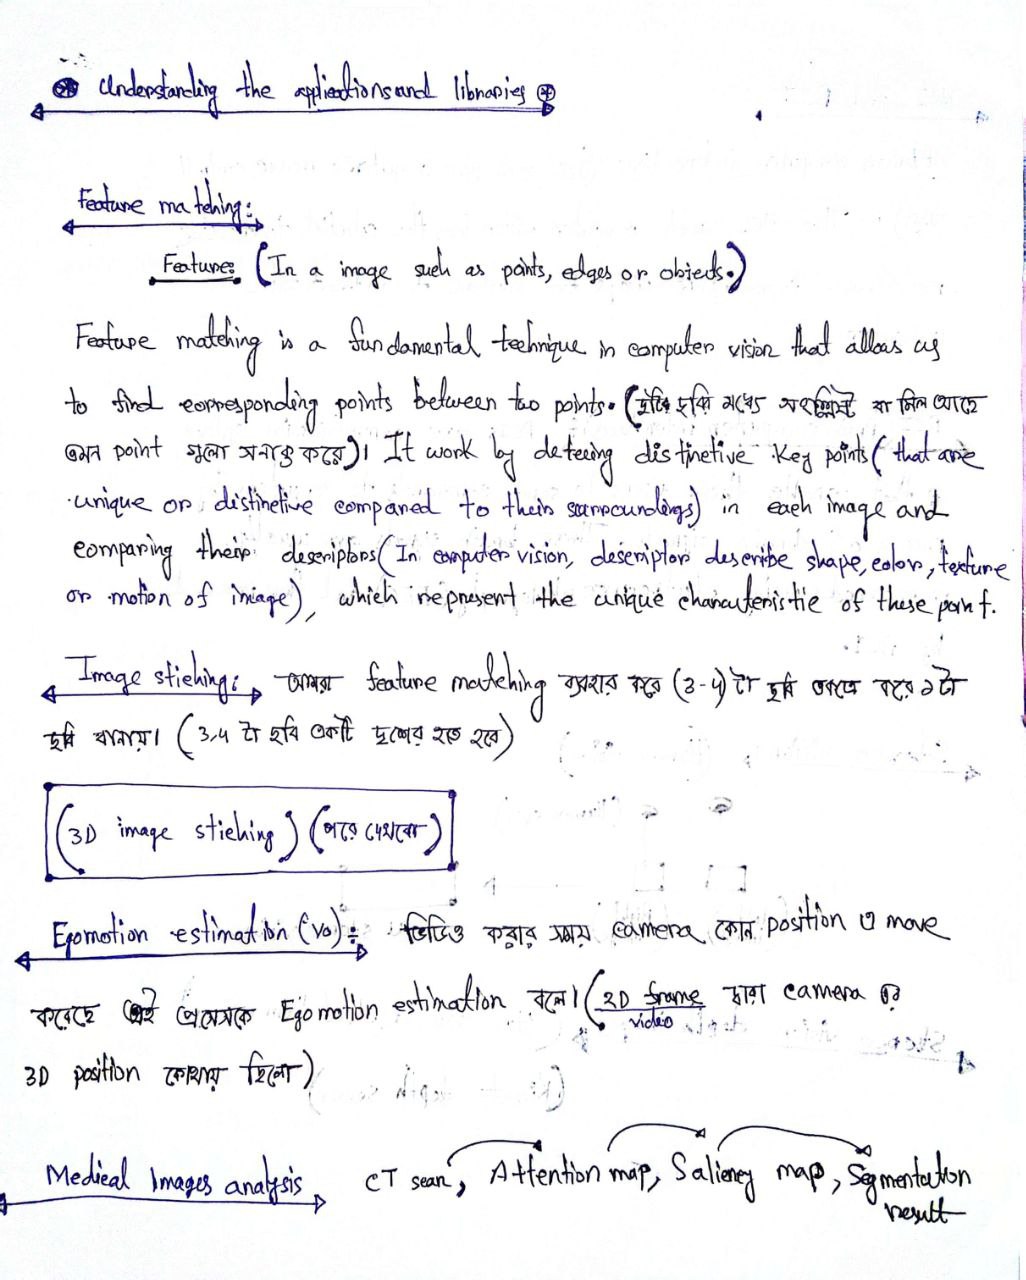 Understanding the applications and libraries
Feature matching:
Feature: (In a image such as points, edges or objects.)
Feature matching is a fundamental technique in computer vision that allows us
to find corresponding points between two points. (দুটি ছবি মধ্যে সংশ্লিষ্ট বা মিল আছে
এমন point গুলো সনাক্ত করে)। It work by detecing distinctive key points (that are
unique or distinctive compared to their surroundings) in each image and
comparing their descriptors (In computer vision, descriptor describe shape, color, texture
or motion of image), which represent the unique characteristic of these point.
Image stiching: আমরা feature matching ব্যবহার করে (3-4) টা ছবি একত্রে করে ১টা
ছবি বানায়। (3,4 টা ছবি একটি দৃশ্যের হতে হবে)
(3D image stiching) (পরে দেখবো)
Egomotion estimation (vo): ভিডিও করার সময় camera কোন position এ move
করেছে এই প্রসেসকে Egomotion estimation বলে। (2D frame দ্বারা camera র
video
3D position কোথায় ছিলো)
Medical Images analysis CT scan, Attention map, Saliency map, Segmentation
result